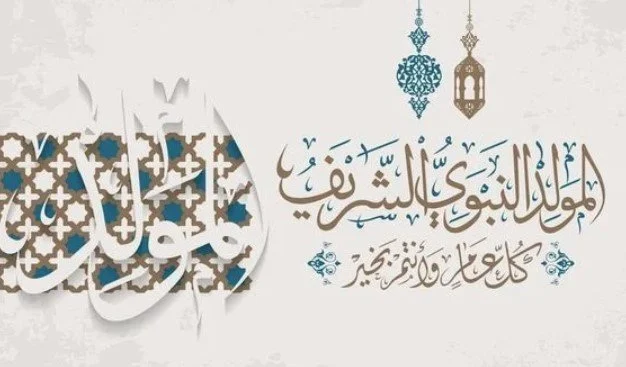 المَولِدُ النَبَويُّ الشَّريفُ
كُلُّ عَامٍ وَأَنتُمْ بِخَيْرٍ
المولد